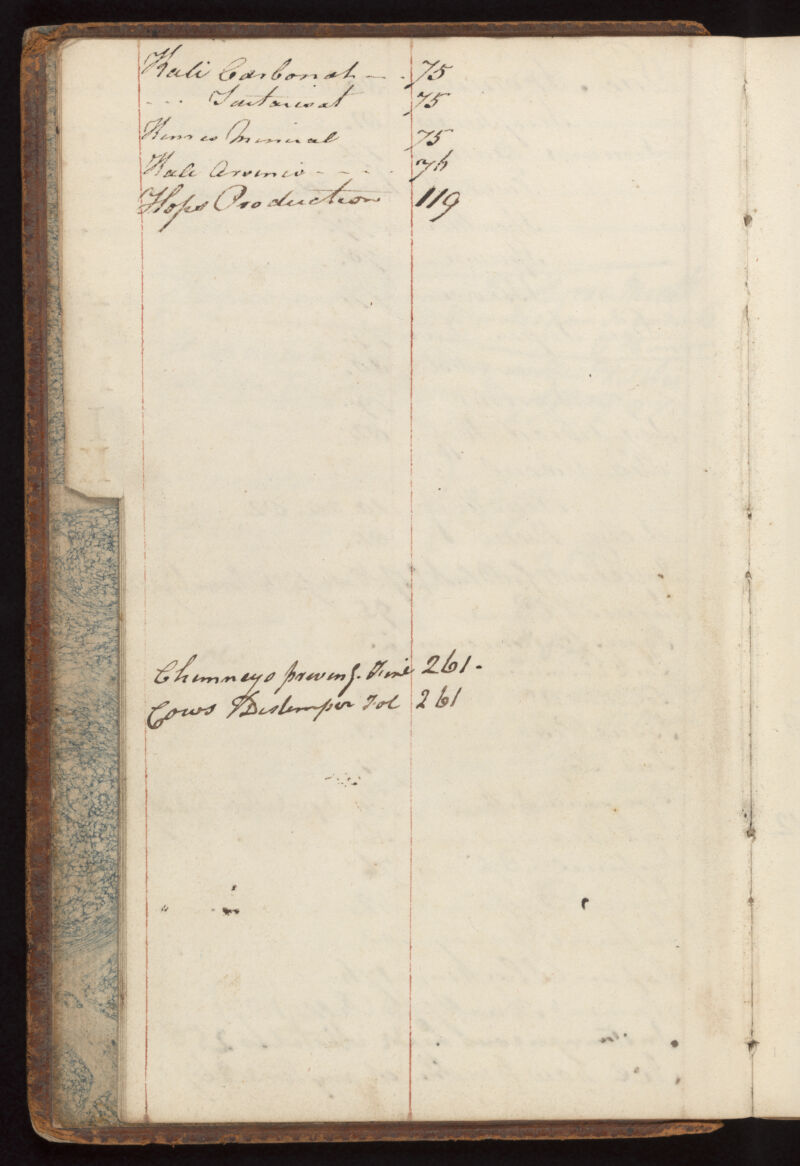 Kali Carbonat - - . 75
- - - Tartarisat 75
Kermes Mineral 75
Kali Arsenic - - - . 76
Hops Production 119
Chimneys preveng. Fire 261.
Cows Distemper 261